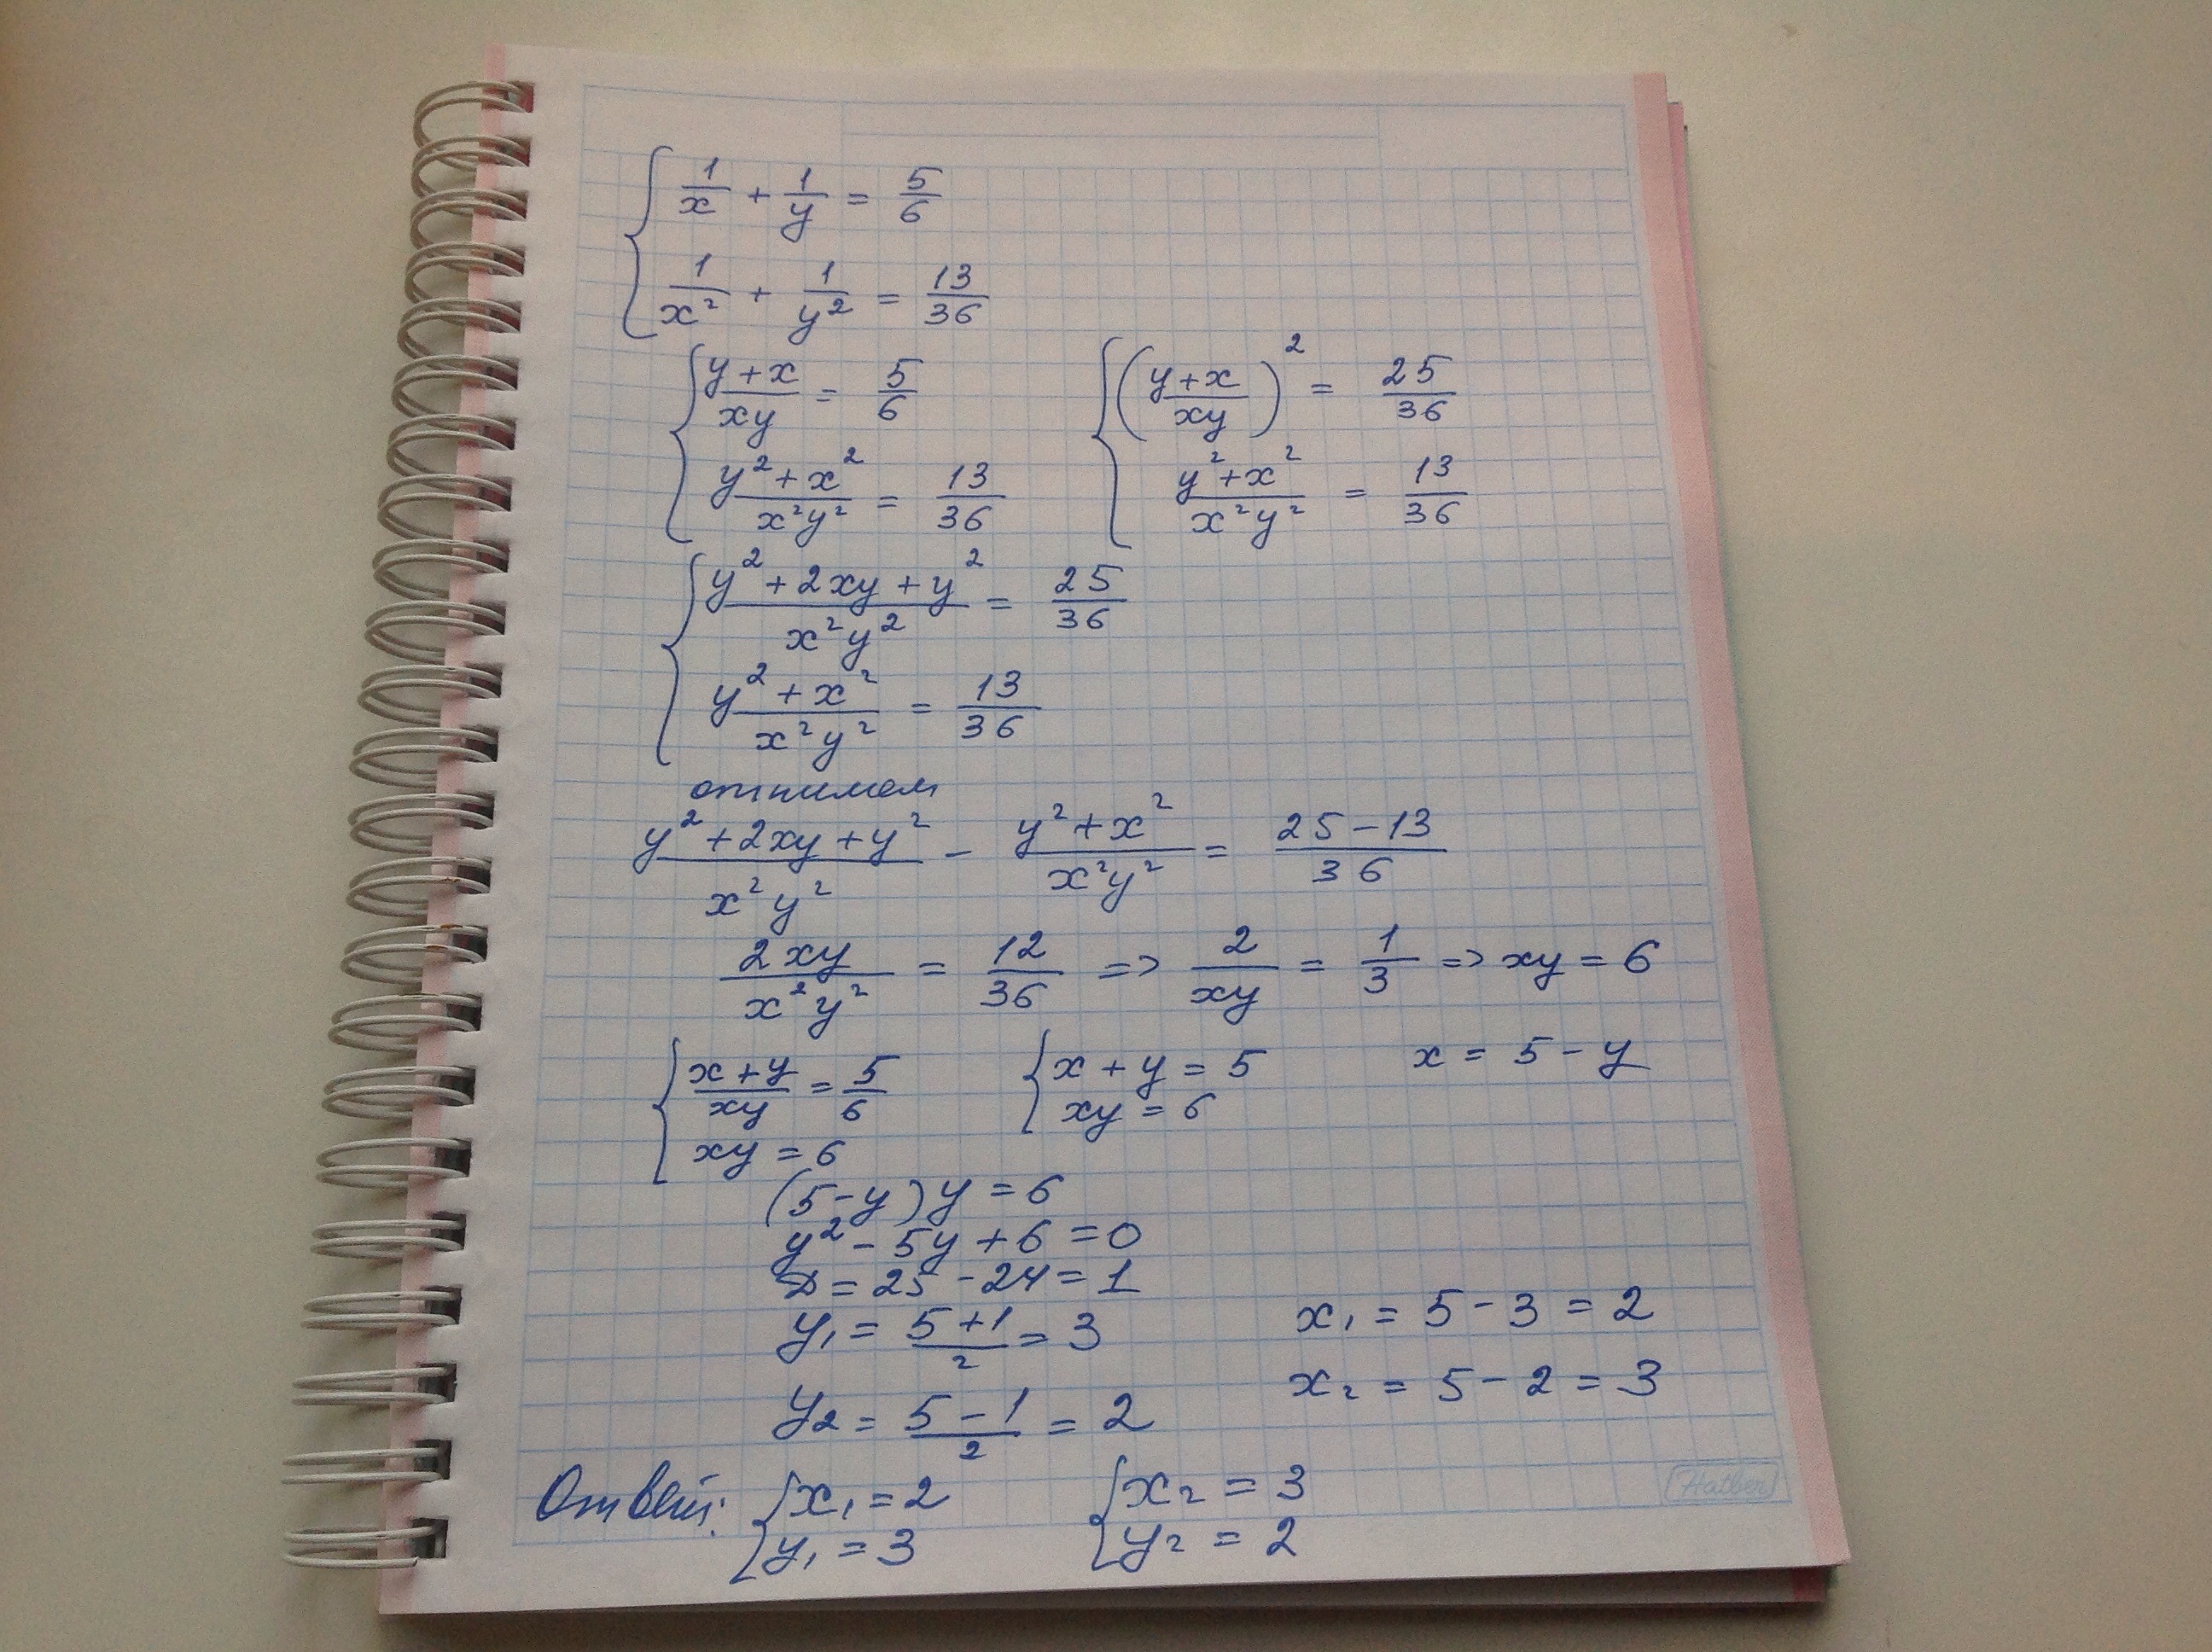 { 1/x + 1/y = 5/6
1/x² + 1/y² = 13/36
{ (y+x)/(xy) = 5/6 { ((y+x)/(xy))² = 25/36
(y²+x²)/(x²y²) = 13/36 (y²+x²)/(x²y²) = 13/36
{ (y²+2xy+y²)/(x²y²) = 25/36
(y²+x²)/(x²y²) = 13/36
отнимем
(y²+2xy+y²)/(x²y²) - (y²+x²)/(x²y²) = (25-13)/36
2xy/(x²y²) = 12/36 => 2/(xy) = 1/3 => xy = 6
{ (x+y)/(xy) = 5/6 { x+y = 5 x = 5-y
xy = 6 xy = 6
(5-y)y = 6
y²-5y+6=0
D = 25-24 = 1
y₁ = (5+1)/2 = 3 x₁ = 5-3 = 2
y₂ = (5-1)/2 = 2 x₂ = 5-2 = 3
Ответ: { x₁ = 2 { x₂ = 3
y₁ = 3 y₂ = 2
Hatber